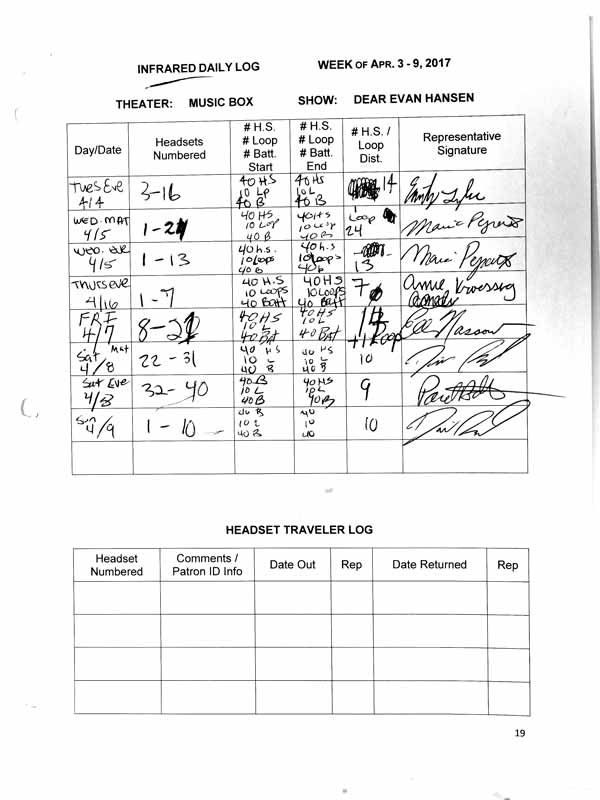 INFRARED DAILY LOG WEEK OF APR. 3 - 9, 2017
THEATER: MUSIC BOX SHOW: DEAR EVAN HANSEN
Day/Date Headsets Numbered # H.S. # Loop # Batt. Start # H.S. # Loop # Batt. End # H.S. / Loop Dist. Representative Signature
Tues Eve 4/4 3-16 40 HS 10 LP 40 B 40 HS 10 L 40 B 14
WED. MAT 4/5 1-24 40HS 10 Loop 40 B 40HS 10 Loop 40 B Loop 1 24
WED. EVE 4/5 1-13 40 h.s. 10 Loops 40 B 40 h.s. 10 Loops 40 B 13
THURS EVE 4/16 1-7 40 H.S 10 LOOPS 40 BATT 40 HS 10 LOOPS 40 BATT 7 Annie Kroessig
FRI 4/7 8-21 40HS 10 L 40 BAT 40HS 10 L 40 BAT 14 +1 Loop
Sat Mat 4/8 22-31 40 HS 10 L 40 B 40 HS 10 L 40 B 10
Sat Eve 4/8 32-40 40 B 10 L 40 B 40 HS 10 L 40 B 9
Sun 4/9 1-10 40 B 10 L 40 B 40 10 40 10
HEADSET TRAVELER LOG
Headset Numbered Comments / Patron ID Info Date Out Rep Date Returned Rep
19